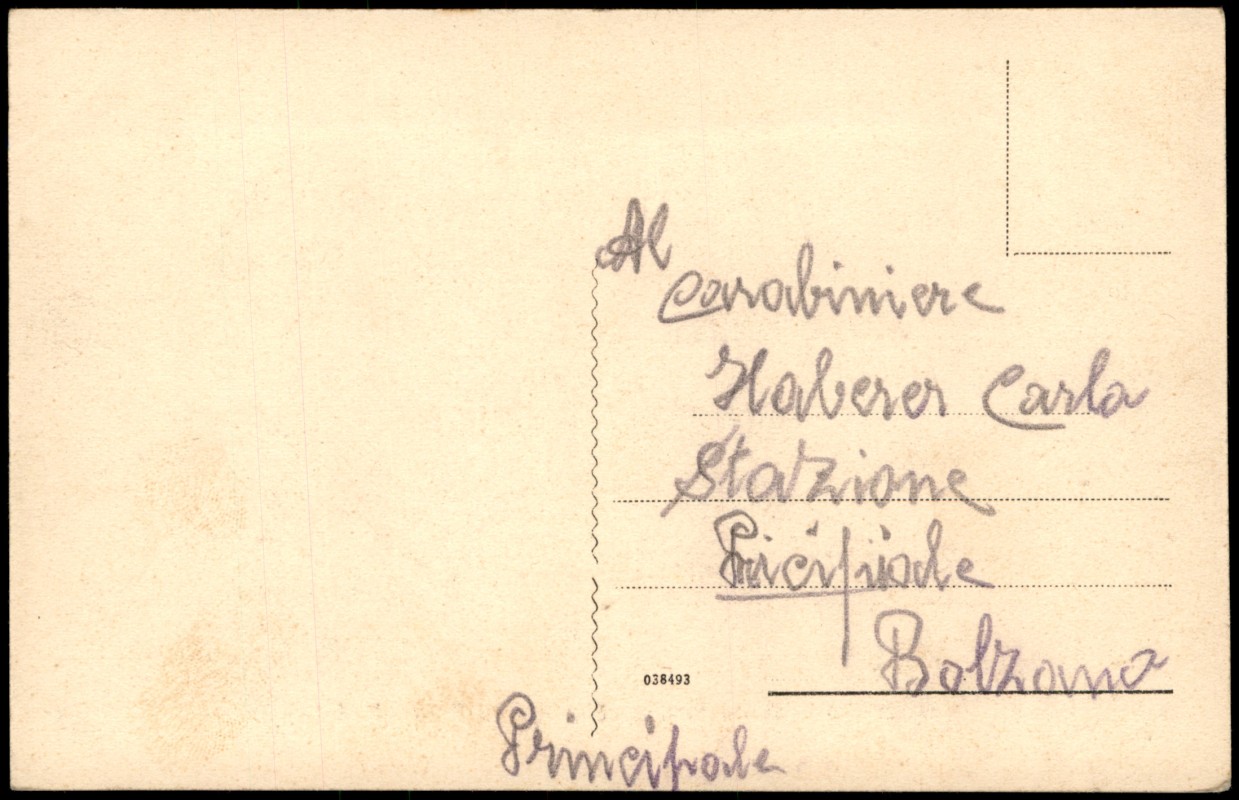 Al
Carabiniere
Haberer Carlo
Stazione
Pricipiale
Bolzano
038493
Principale